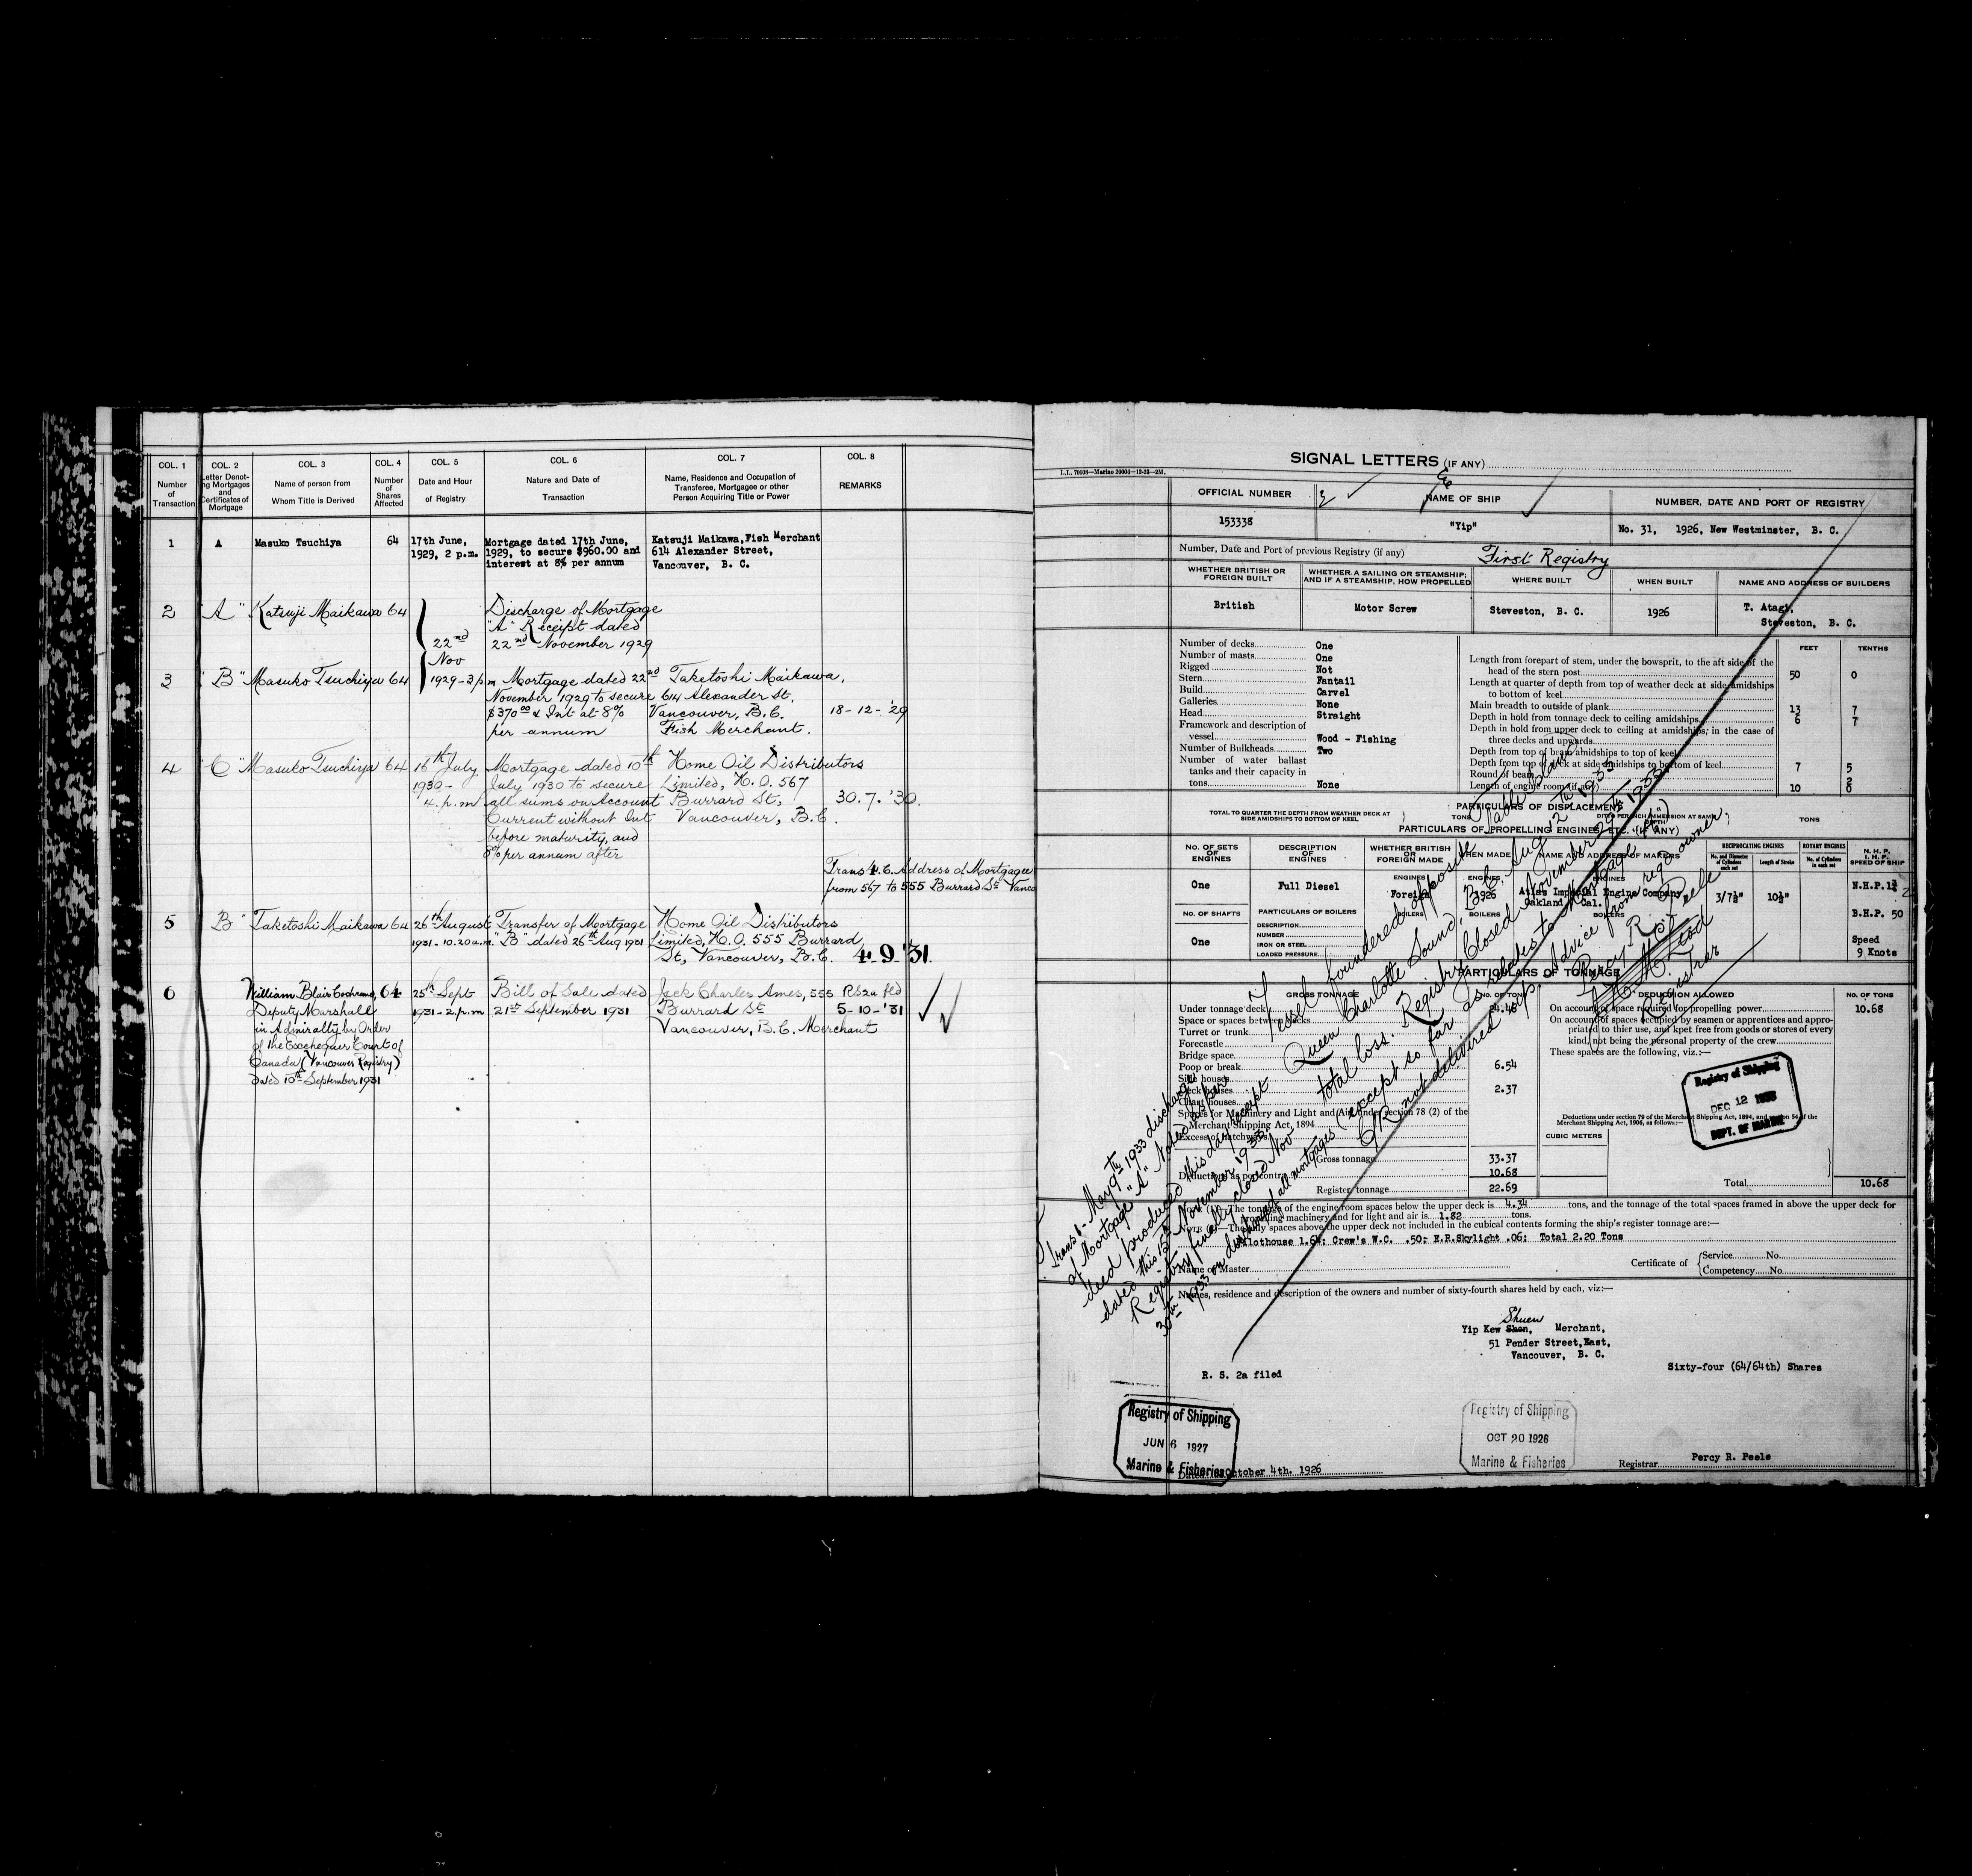 COL. 1
Number
of
Transaction
COL. 2
Letter Denot-
ing Mortgages
and
Certificates of
Mortgage
COL. 3
Name of person from
Whom Title is Derived
COL. 4
Number
of
Shares
Affected
COL. 5
Date and Hour
of Registry
COL. 6
Nature and Date of
Transaction
COL. 7
Name, Residence and Occupation of
Transferee, Mortgagee or other
Person Acquiring Title or Power
COL. 8
REMARKS
1 A Masuko Tsuchiya 64
17th June,
1929, 2 p.m.
Mortgage dated 17th June,
1929, to secure $960.00 and
interest at 8% per annum
Katsuji Maikawa, Fish Merchant
614 Alexander Street,
Vancouver, B. C.
2 "A" Katsuji Maikawa 64
22nd
Nov
1929 - 3 pm
Discharge of Mortgage
"A" Receipt dated
22nd November 1929
3 "B" Masuko Tsuchiya 64
Mortgage dated 22nd
November 1929 to secure
$370.00 & Int at 8%
per annum
Taketoshi Maikawa,
614 Alexander St.
Vancouver, B.C.
Fish Merchant.
18-12-'29
4 "C" Masuko Tsuchiya 64
16th July
1930 -
4. p.m
Mortgage dated 10th
July 1930 to secure
all sums on Account
Current without Int
before maturity, and
8% per annum after
Home Oil Distributors
Limited, H.O. 567
Burrard St,
Vancouver, B.C.
30.7.'30.
Trans 4. C. Address of Mortgagee
from 567 to 555 Burrard St Vanco
5 "B" Taketoshi Maikawa 64
26th August
1931 - 10.20 a.m.
Transfer of Mortgage
"B" dated 26th Aug 1931
Home Oil Distributors
Limited, H.O. 555 Burrard
St, Vancouver, B.C.
4.9.'31.
6 William Blair Cochrane, 64
Deputy Marshall
in Admiralty by Order
of the Exchequer Court of
Canada (Vancouver Registry)
Dated 10th September 1931
25th Sept
1931 - 2 p.m
Bill of Sale dated
21st September 1931
Jack Charles Ames, 555
Burrard St
Vancouver, B.C. Merchant
RS2a fld
5-10-'31
SIGNAL LETTERS (IF ANY)
L.L. 70108—Marine 20000—12-23—2M.
OFFICIAL NUMBER
153338
NAME OF SHIP
"Yip"
NUMBER, DATE AND PORT OF REGISTRY
No. 31, 1926, New Westminster, B. C.
Number, Date and Port of previous Registry (if any)
First Registry
WHETHER BRITISH OR
FOREIGN BUILT
British
WHETHER A SAILING OR STEAMSHIP;
AND IF A STEAMSHIP, HOW PROPELLED
Motor Screw
WHERE BUILT
Steveston, B. C.
WHEN BUILT
1926
NAME AND ADDRESS OF BUILDERS
T. Atagi,
Steveston, B. C.
Number of decks One
Number of masts One
Rigged Not
Stern Fantail
Build Carvel
Galleries None
Head Straight
Framework and description of
vessel Wood - Fishing
Number of Bulkheads Two
Number of water ballast
tanks and their capacity in
tons None
FEET TENTHS
Length from forepart of stem, under the bowsprit, to the aft side of the
head of the stern post 50 0
Length at quarter of depth from top of weather deck at side amidships
to bottom of keel
Main breadth to outside of plank 13 7
Depth in hold from tonnage deck to ceiling amidships 6 7
Depth in hold from upper deck to ceiling at amidships, in the case of
three decks and upwards
Depth from top of beam amidships to top of keel
Depth from top of deck at side amidships to bottom of keel 7 5
Round of beam 2
Length of engine room (if any) 10 0
PARTICULARS OF DISPLACEMENT
TOTAL TO QUARTER THE DEPTH FROM WEATHER DECK AT
SIDE AMIDSHIPS TO BOTTOM OF KEEL
TONS
DITTO PER INCH IMMERSION AT SAME
DEPTH
TONS
PARTICULARS OF PROPELLING ENGINES, ETC. (IF ANY)
No. OF SETS
OF
ENGINES
One
No. OF SHAFTS
One
DESCRIPTION
OF
ENGINES
Full Diesel
PARTICULARS OF BOILERS
DESCRIPTION
NUMBER
IRON OR STEEL
LOADED PRESSURE
WHETHER BRITISH
OR
FOREIGN MADE
ENGINES
Foreign
BOILERS
WHEN MADE
ENGINES
1926
BOILERS
NAME AND ADDRESS OF MAKERS
ENGINES
Atlas Imperial Engine Company
Oakland, Cal.
BOILERS
RECIPROCATING ENGINES
No. and Diameter
of Cylinders
in each set
3/7½"
Length of Stroke
10½"
ROTARY ENGINES
No. of Cylinders
in each set
N. H. P.
I. H. P.
SPEED OF SHIP
B.H.P. 50
Speed
9 Knots
PARTICULARS OF TONNAGE
GROSS TONNAGE
No. OF TONS
Under tonnage deck 24.46
Space or spaces between decks
Turret or trunk
Forecastle
Bridge space
Poop or break 6.54
Side houses
Deck houses 2.37
Chart houses
Spaces for Machinery and Light and Air under section 78 (2) of the
Merchant Shipping Act, 1894
Excess of hatchways
Gross tonnage 33.37
Deductions as per contra 10.68
Register tonnage 22.69
DEDUCTION ALLOWED
No. OF TONS
On account of space required for propelling power 10.68
On account of spaces occupied by seamen or apprentices and appro-
priated to thier use, and kpet free from goods or stores of every
kind, not being the personal property of the crew
These spaces are the following, viz.:—
Deductions under section 79 of the Merchant Shipping Act, 1894, and section 54 of the
Merchant Shipping Act, 1906, as follows:—
CUBIC METERS
Total 10.68
Registry of Shipping
DEC 12 1933
DEPT. OF MARINE
The tonnage of the engine room spaces below the upper deck is 4.34 tons, and the tonnage of the total spaces framed in above the upper deck for
propelling machinery and for light and air is 1.82 tons.
NOTE —The only spaces above the upper deck not included in the cubical contents forming the ship's register tonnage are:—
Pilothouse 1.64; Crew's W.C. .50; E.R.Skylight .06; Total 2.20 Tons
Name of Master
Certificate of
Service No.
Competency No.
Names, residence and description of the owners and number of sixty-fourth shares held by each, viz:—
Shuen
Yip Kew Shen, Merchant,
51 Pender Street, East,
Vancouver, B. C.
Sixty-four (64/64th) Shares
R. S. 2a filed
Registry of Shipping
JUN 6 1927
Marine & Fisheries
Registry of Shipping
OCT 20 1926
Marine & Fisheries
Dated October 4th. 1926
Registrar Percy R. Peele
Vessel foundered opposite Table Island
Queen Charlotte Sound, B.C. Aug 12th 1933
total loss. Registry Closed November 29th 1933
(except so far as relates to Mortgage "A")
CR not delivered up, Advice from reg'd owner;
Percy R. Peele
Registrar
Trans 1 - May 9th 1933 discharge
of Mortgage "A" Noted as per
deed produced this day receipt
dated this 15th November 1933.
Registry finally closed Nov
30th 1933 on discharge of all mortgages